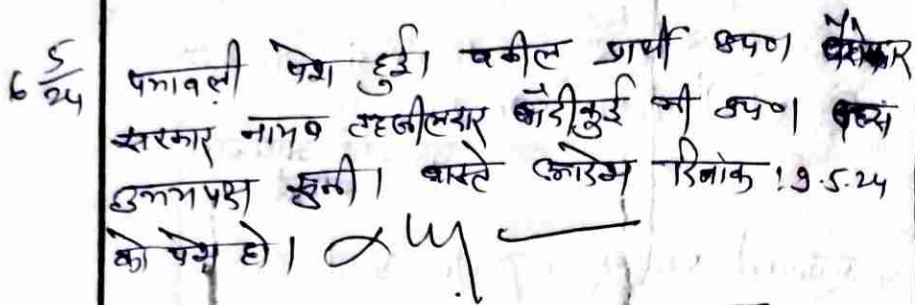 6 5/24 पत्रावली पेश हुई। वकील प्रार्थी उप०। पैरोकार
सरकार नायब तहसीलदार बाँदीकुई भी उप०। बहस
उभयपक्ष सुनी। वास्ते आदेश दिनांक 9.5.24
को पेश हो।